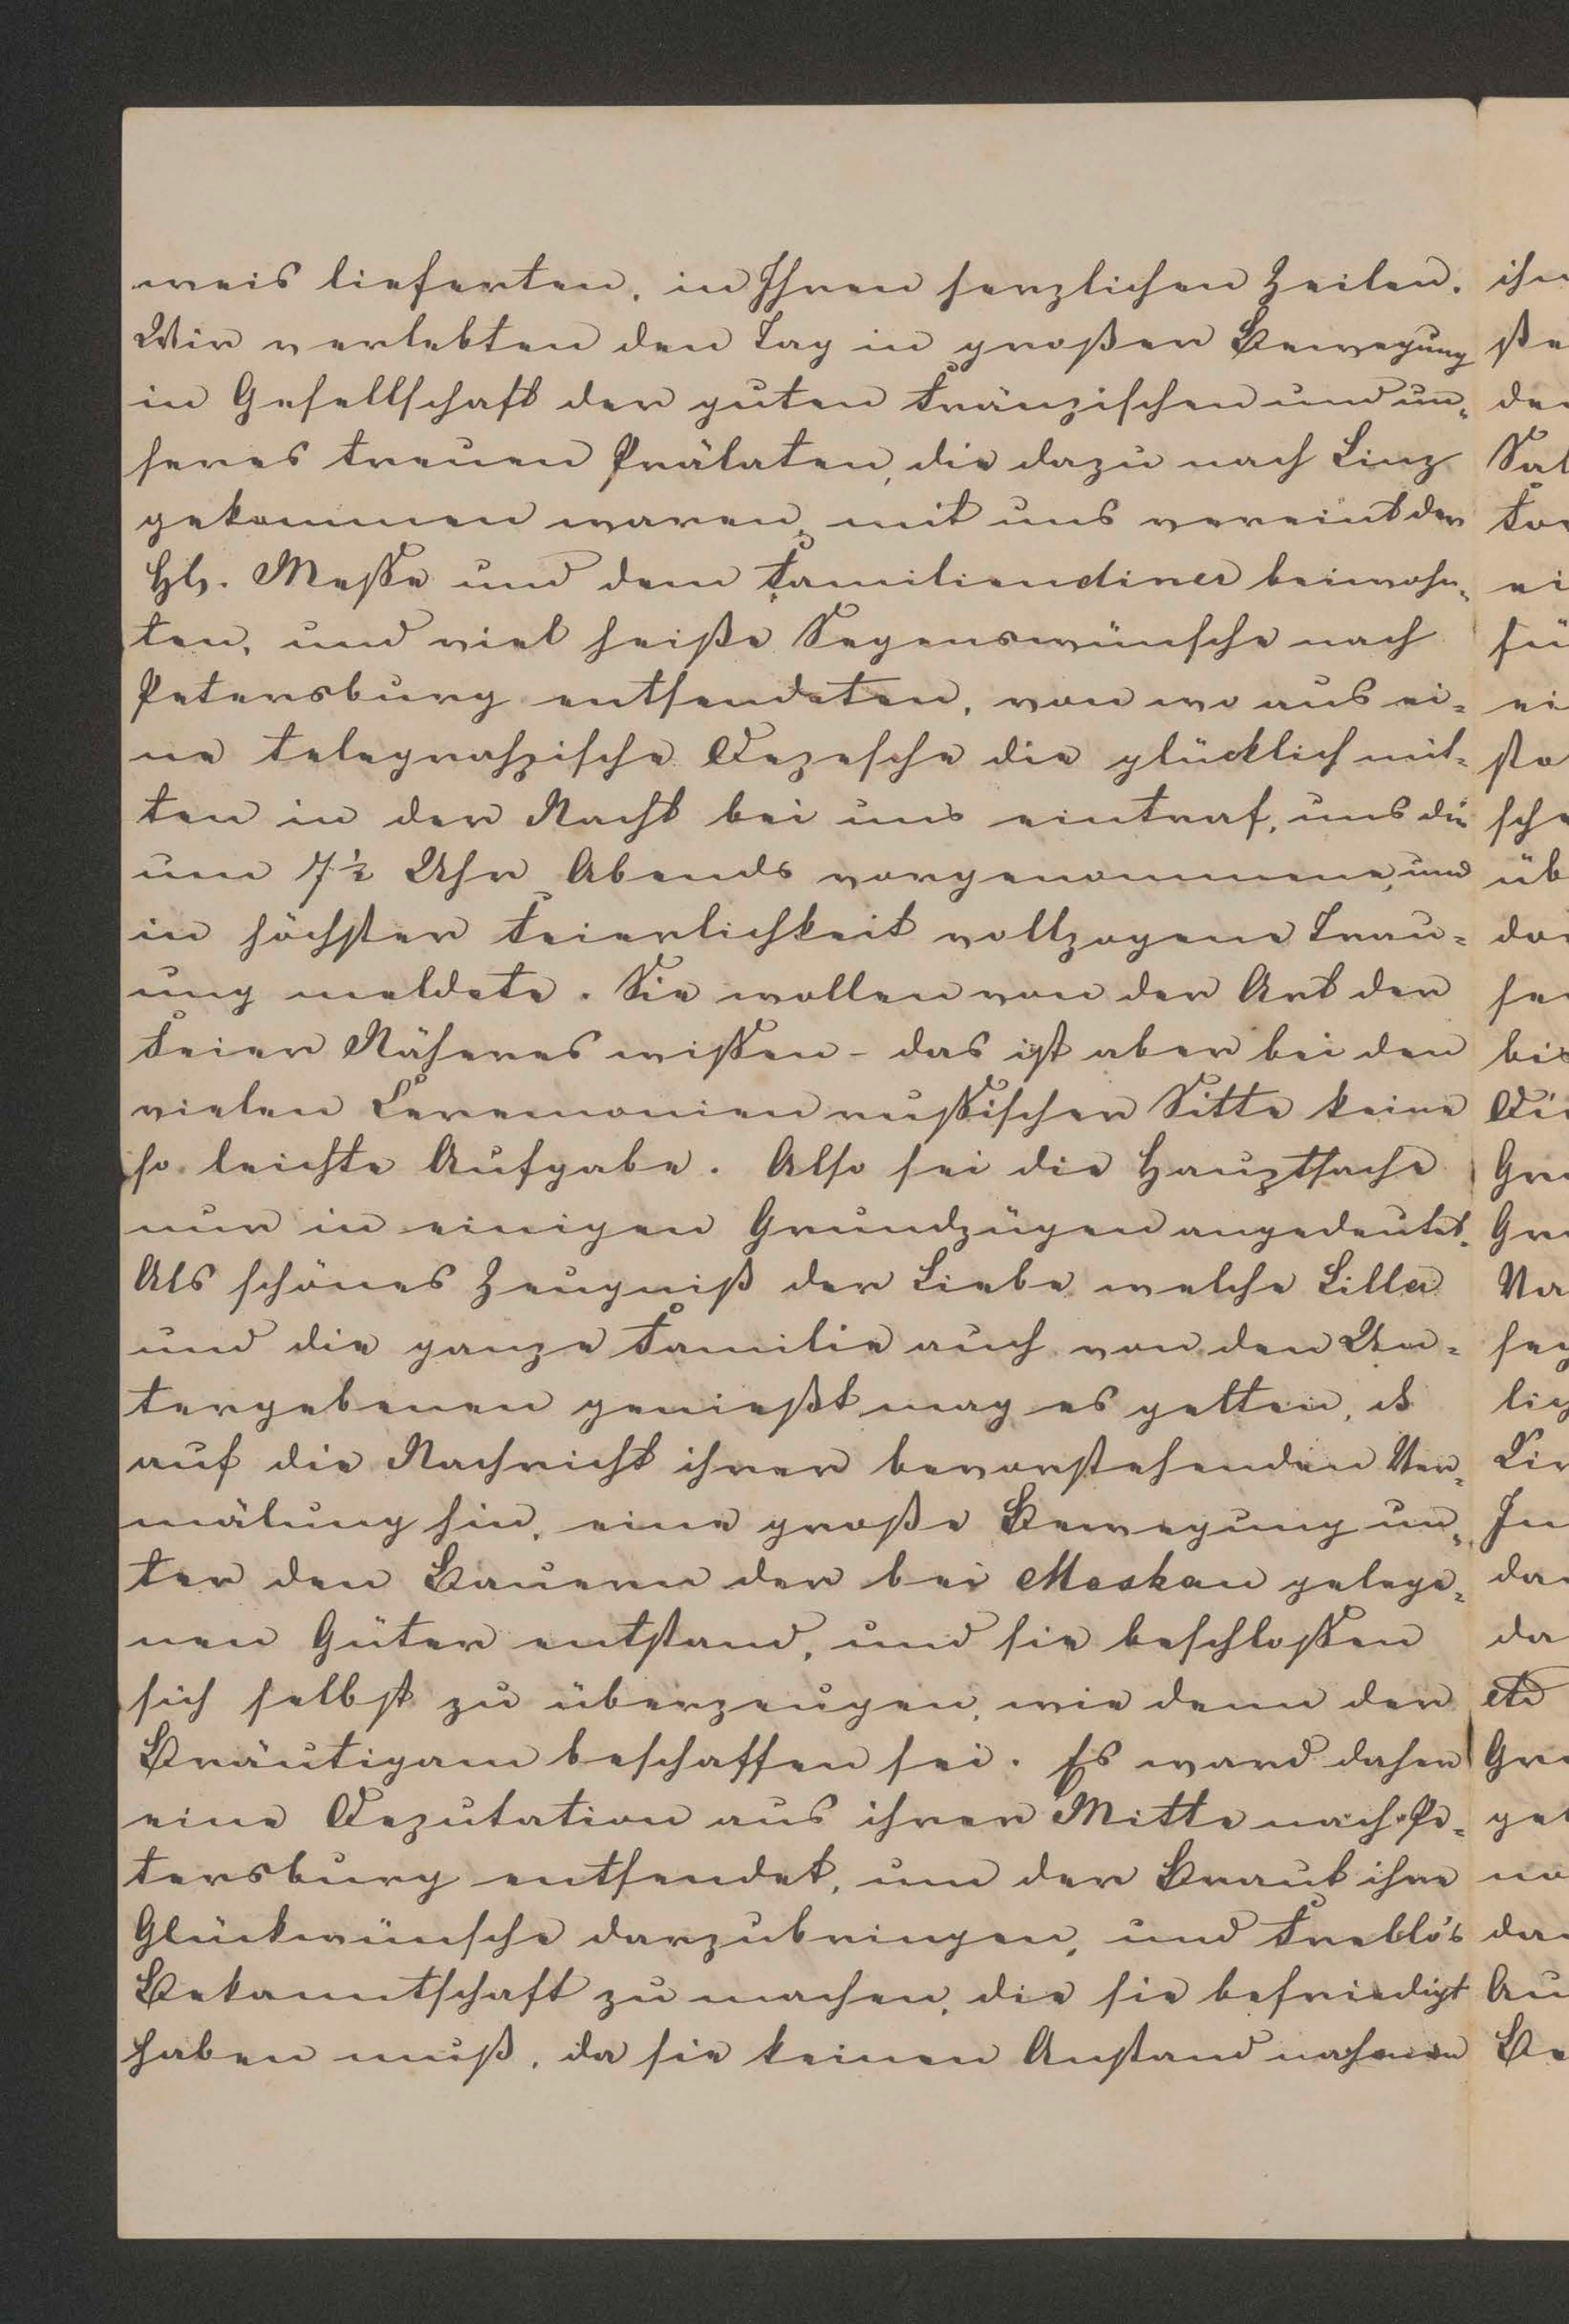 weis lieferten, in Ihren herzlichen Zeilen.
Wir verlebten den Tag in großer Bewegung
in Gesellschaft der guten Fränzischen und un=
seres treuen Prälaten, die dazu nach Linz
gekommen waren, mit uns vereint der
Hl. Messe und dem Familiendiner beiwohn=
ten, und viel heiße Segenswünsche nach
Petersburg entsendeten, von wo aus ei=
ne telegraphische Depesche die glücklich mit=
ten in der Nacht bei uns eintraf, uns die
um 7½ Uhr Abends vorgenommene, und
in höchster Feierlichkeit vollzogene Trau=
ung meldete. Sie wollen von der Art der
Feier Näheres wissen - das ist aber bei den
vielen Ceremonien russischer Sitte keine
so leichte Aufgabe. Also sei die Hauptsache
nur in einigen Grundzügen angedeutet.
Als schönes Zeugniß der Liebe welche Lilla
und die ganze Familie auch von den Un=
tergebenen genießt mag es gelten, daß
auf die Nachricht ihrer bevorstehenden Ver=
mälung hin, eine große Bewegung un=
ter den Bauern der bei Moskau gelege=
nen Güter entstand, und sie beschlossen
sich selbst zu überzeugen, wie denn der
Bräutigam beschaffen sei. Es ward daher
eine Deputation aus ihrer Mitte nach Pe=
tersburg entsendet, um der Braut ihre
Glückwünsche darzubringen, und
Bekanntschaft zu machen, die sie befriedigt
haben muß, da sie keinen Anstand nahmen